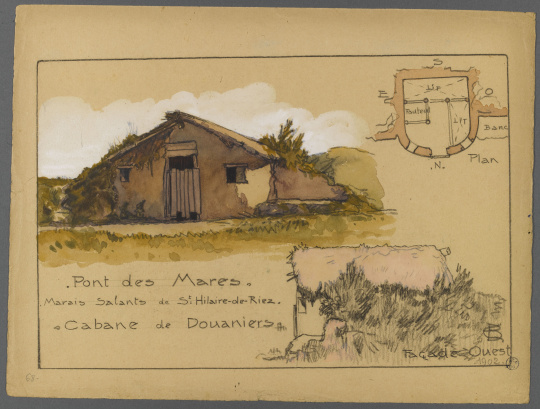 S
E
O
Lit
Fauteuil
Lit
Banc
.N.
Plan
.Pont des Mares.
Marais Salants de St Hilaire-de-Riez.
Cabane de Douaniers
Façade Ouest